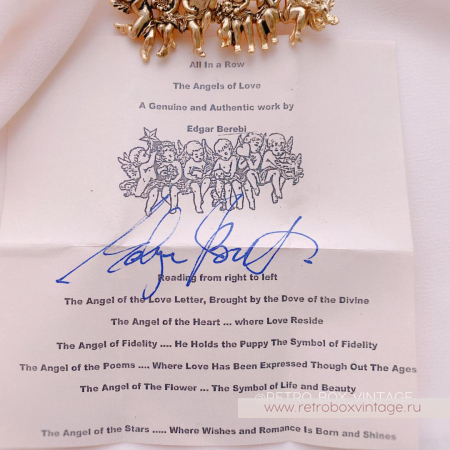 All In a Row
The Angels of Love
A Genuine and Authentic work by
Edgar Berebi
Reading from right to left
The Angel of the Love Letter, Brought by the Dove of the Divine
The Angel of the Heart ... where Love Reside
The Angel of Fidelity .... He Holds the Puppy The Symbol of Fidelity
The Angel of the Poems .... Where Love Has Been Expressed Though Out The Ages
The Angel of The Flower ... The Symbol of Life and Beauty
©RETRO_BOX_VINTAGE
www.retroboxvintage.ru
The Angel of the Stars ..... Where Wishes and Romance Is Born and Shines